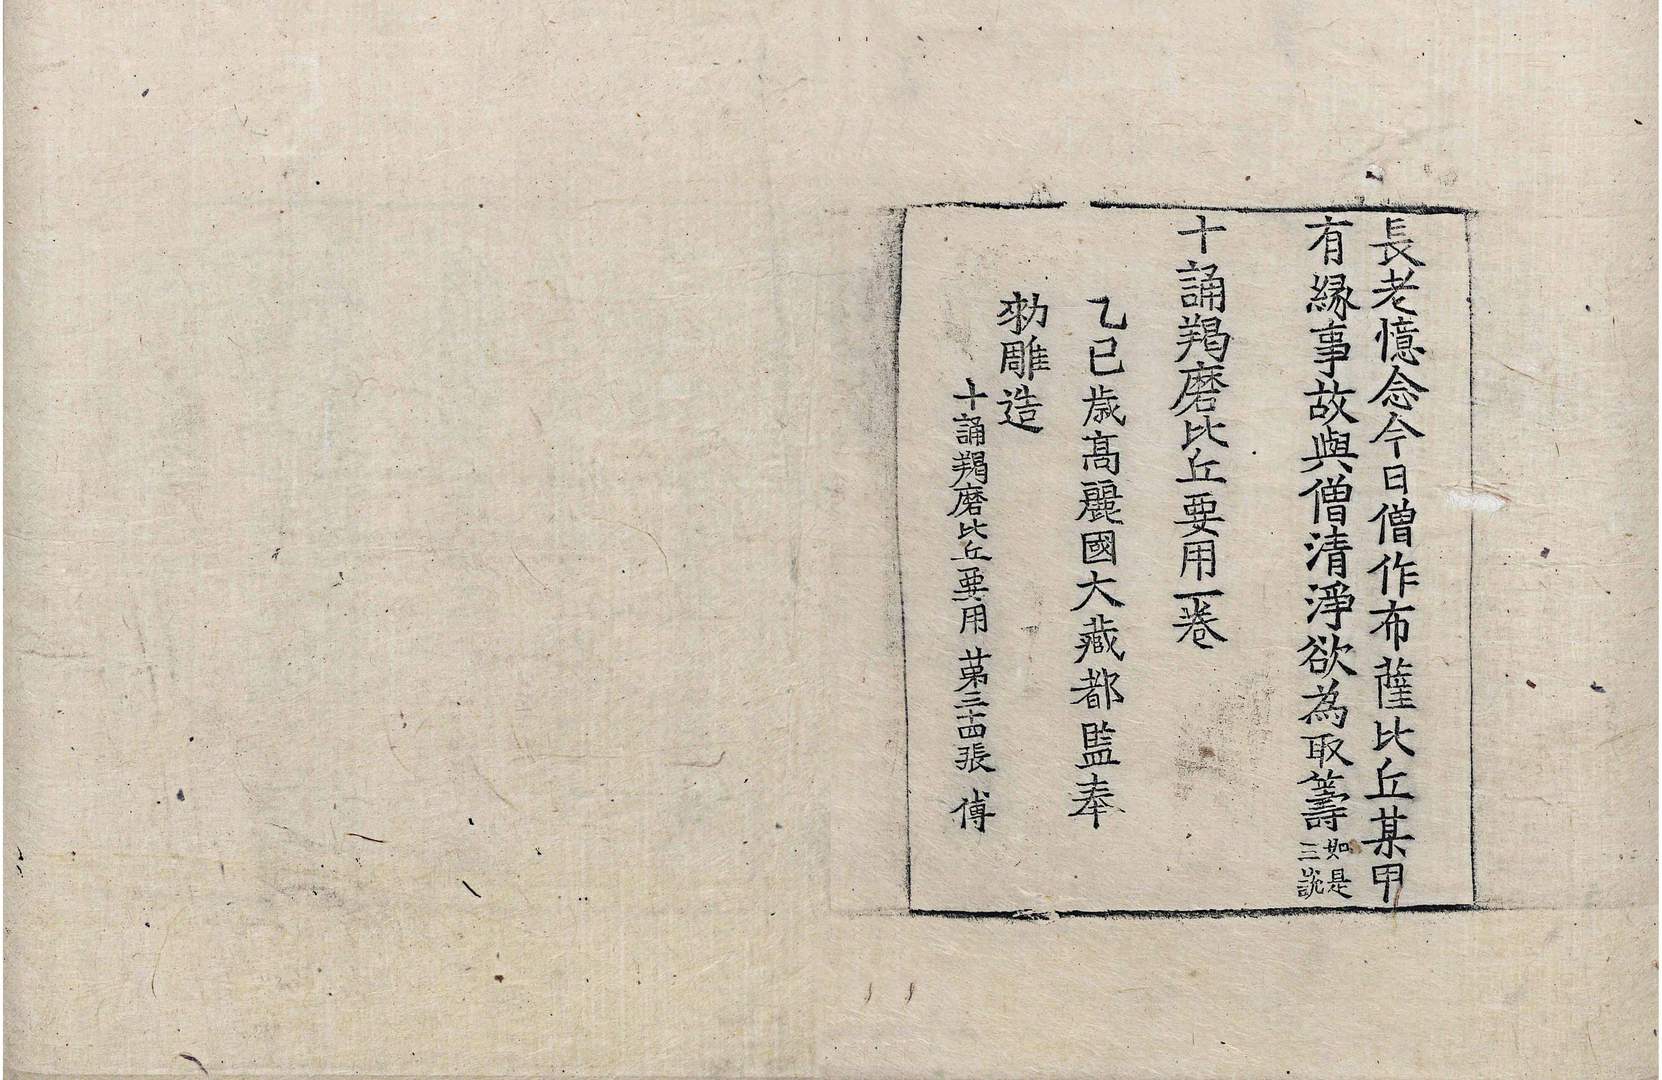 長老憶念今日僧作布薩比丘某甲
有縁事故與僧清淨欲為取籌如是三說
十誦羯磨比丘要用一卷
乙巳歳高麗國大藏都監奉
勑雕造
十誦羯磨比丘要用 苐三十四張 傅